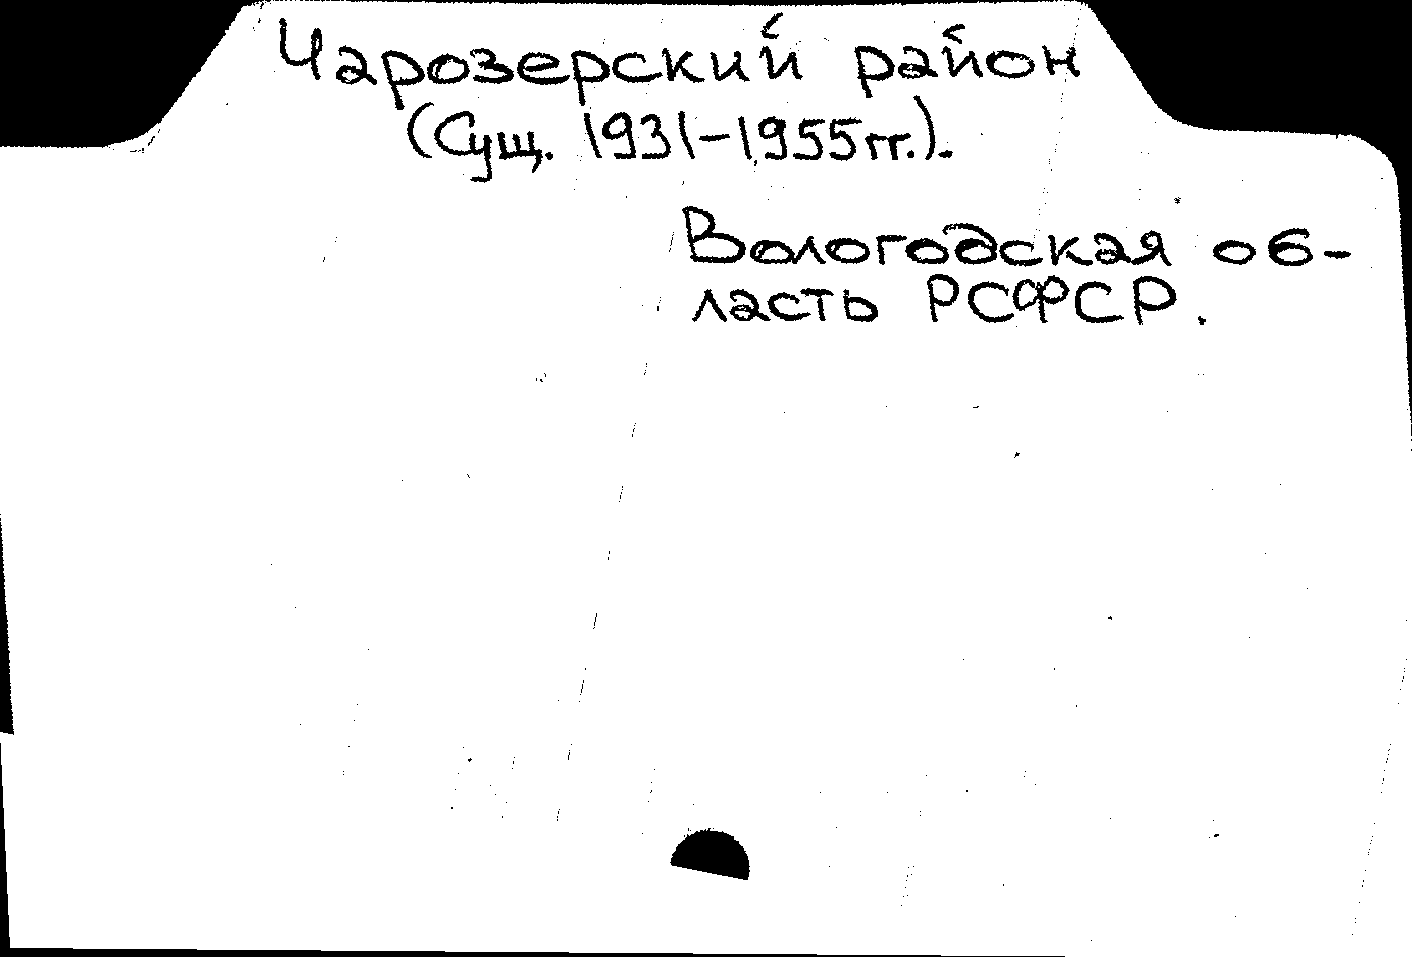 Чарозерский район
(Сущ. 1931-1955гг.).
Вологодская об-
ласть РСФСР.